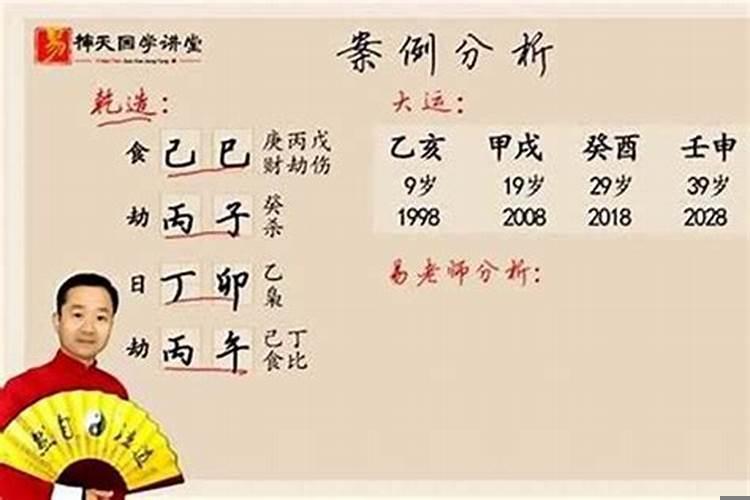 易 神天国学讲堂
案例分析
乾造：
食 己巳 庚丙戊
财劫伤
劫 丙子 癸
杀
日 丁卯 乙
枭
劫 丙午 己丁
食比
大运：
乙亥 甲戌 癸酉 壬申
9岁 19岁 29岁 39岁
1998 2008 2018 2028
易老师分析：
道法自然